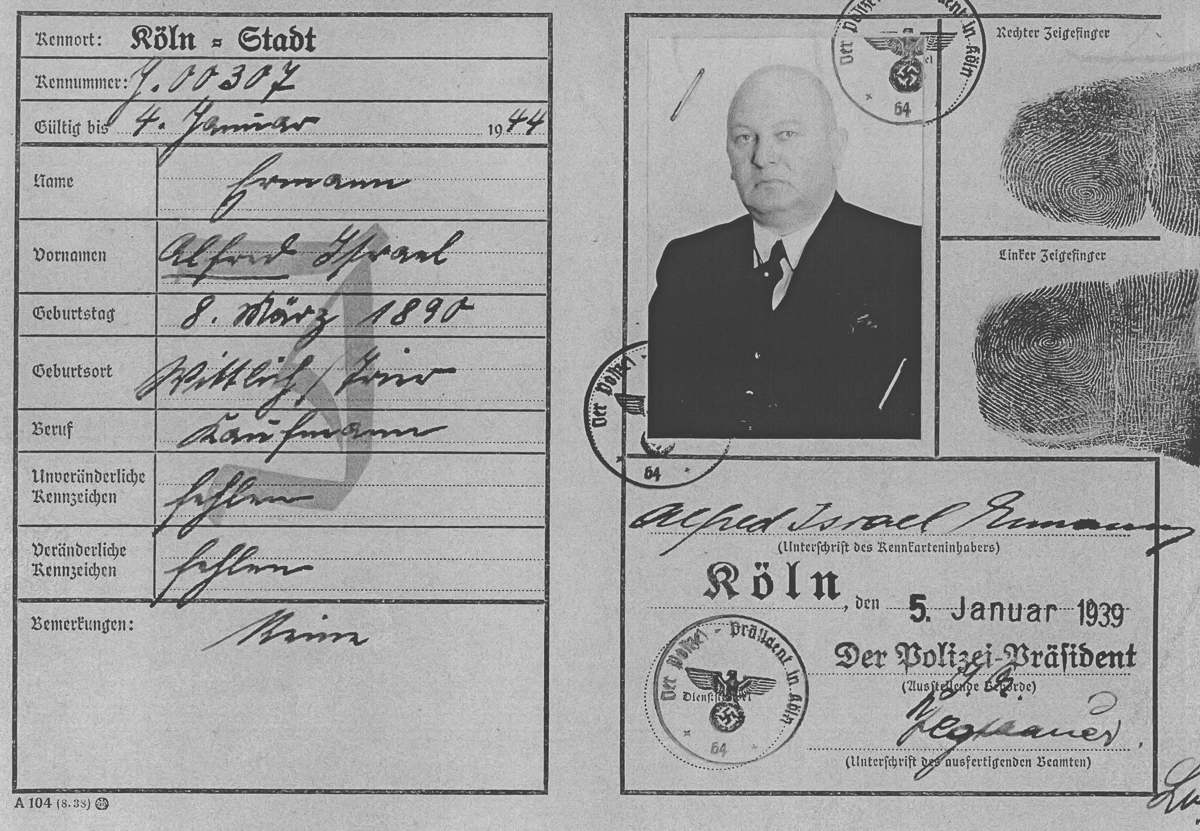 Kennort: Köln = Stadt
Kennummer: J. 00307
Gültig bis 4. Januar 1944
Name Ermann
Vornamen Alfred Israel
Geburtstag 8. März 1890
Geburtsort Wittlich / Trier
Beruf Kaufmann
Unveränderliche
Kennzeichen fehlen
Veränderliche
Kennzeichen fehlen
Bemerkungen: Keine
A 104 (8. 38)
J
Der Polizei-Präsident in Köln
64
Rechter Zeigefinger
Linker Zeigefinger
Der Polizei -
64
Alfred Israel Ermann
(Unterschrift des Kennkarteninhabers)
Köln, den 5. Januar 1939
Der Polizei-Präsident
(Ausstellende Behörde)
Der Polizei - Präsident in Köln
Dienststempel
64
(Unterschrift des ausfertigenden Beamten)